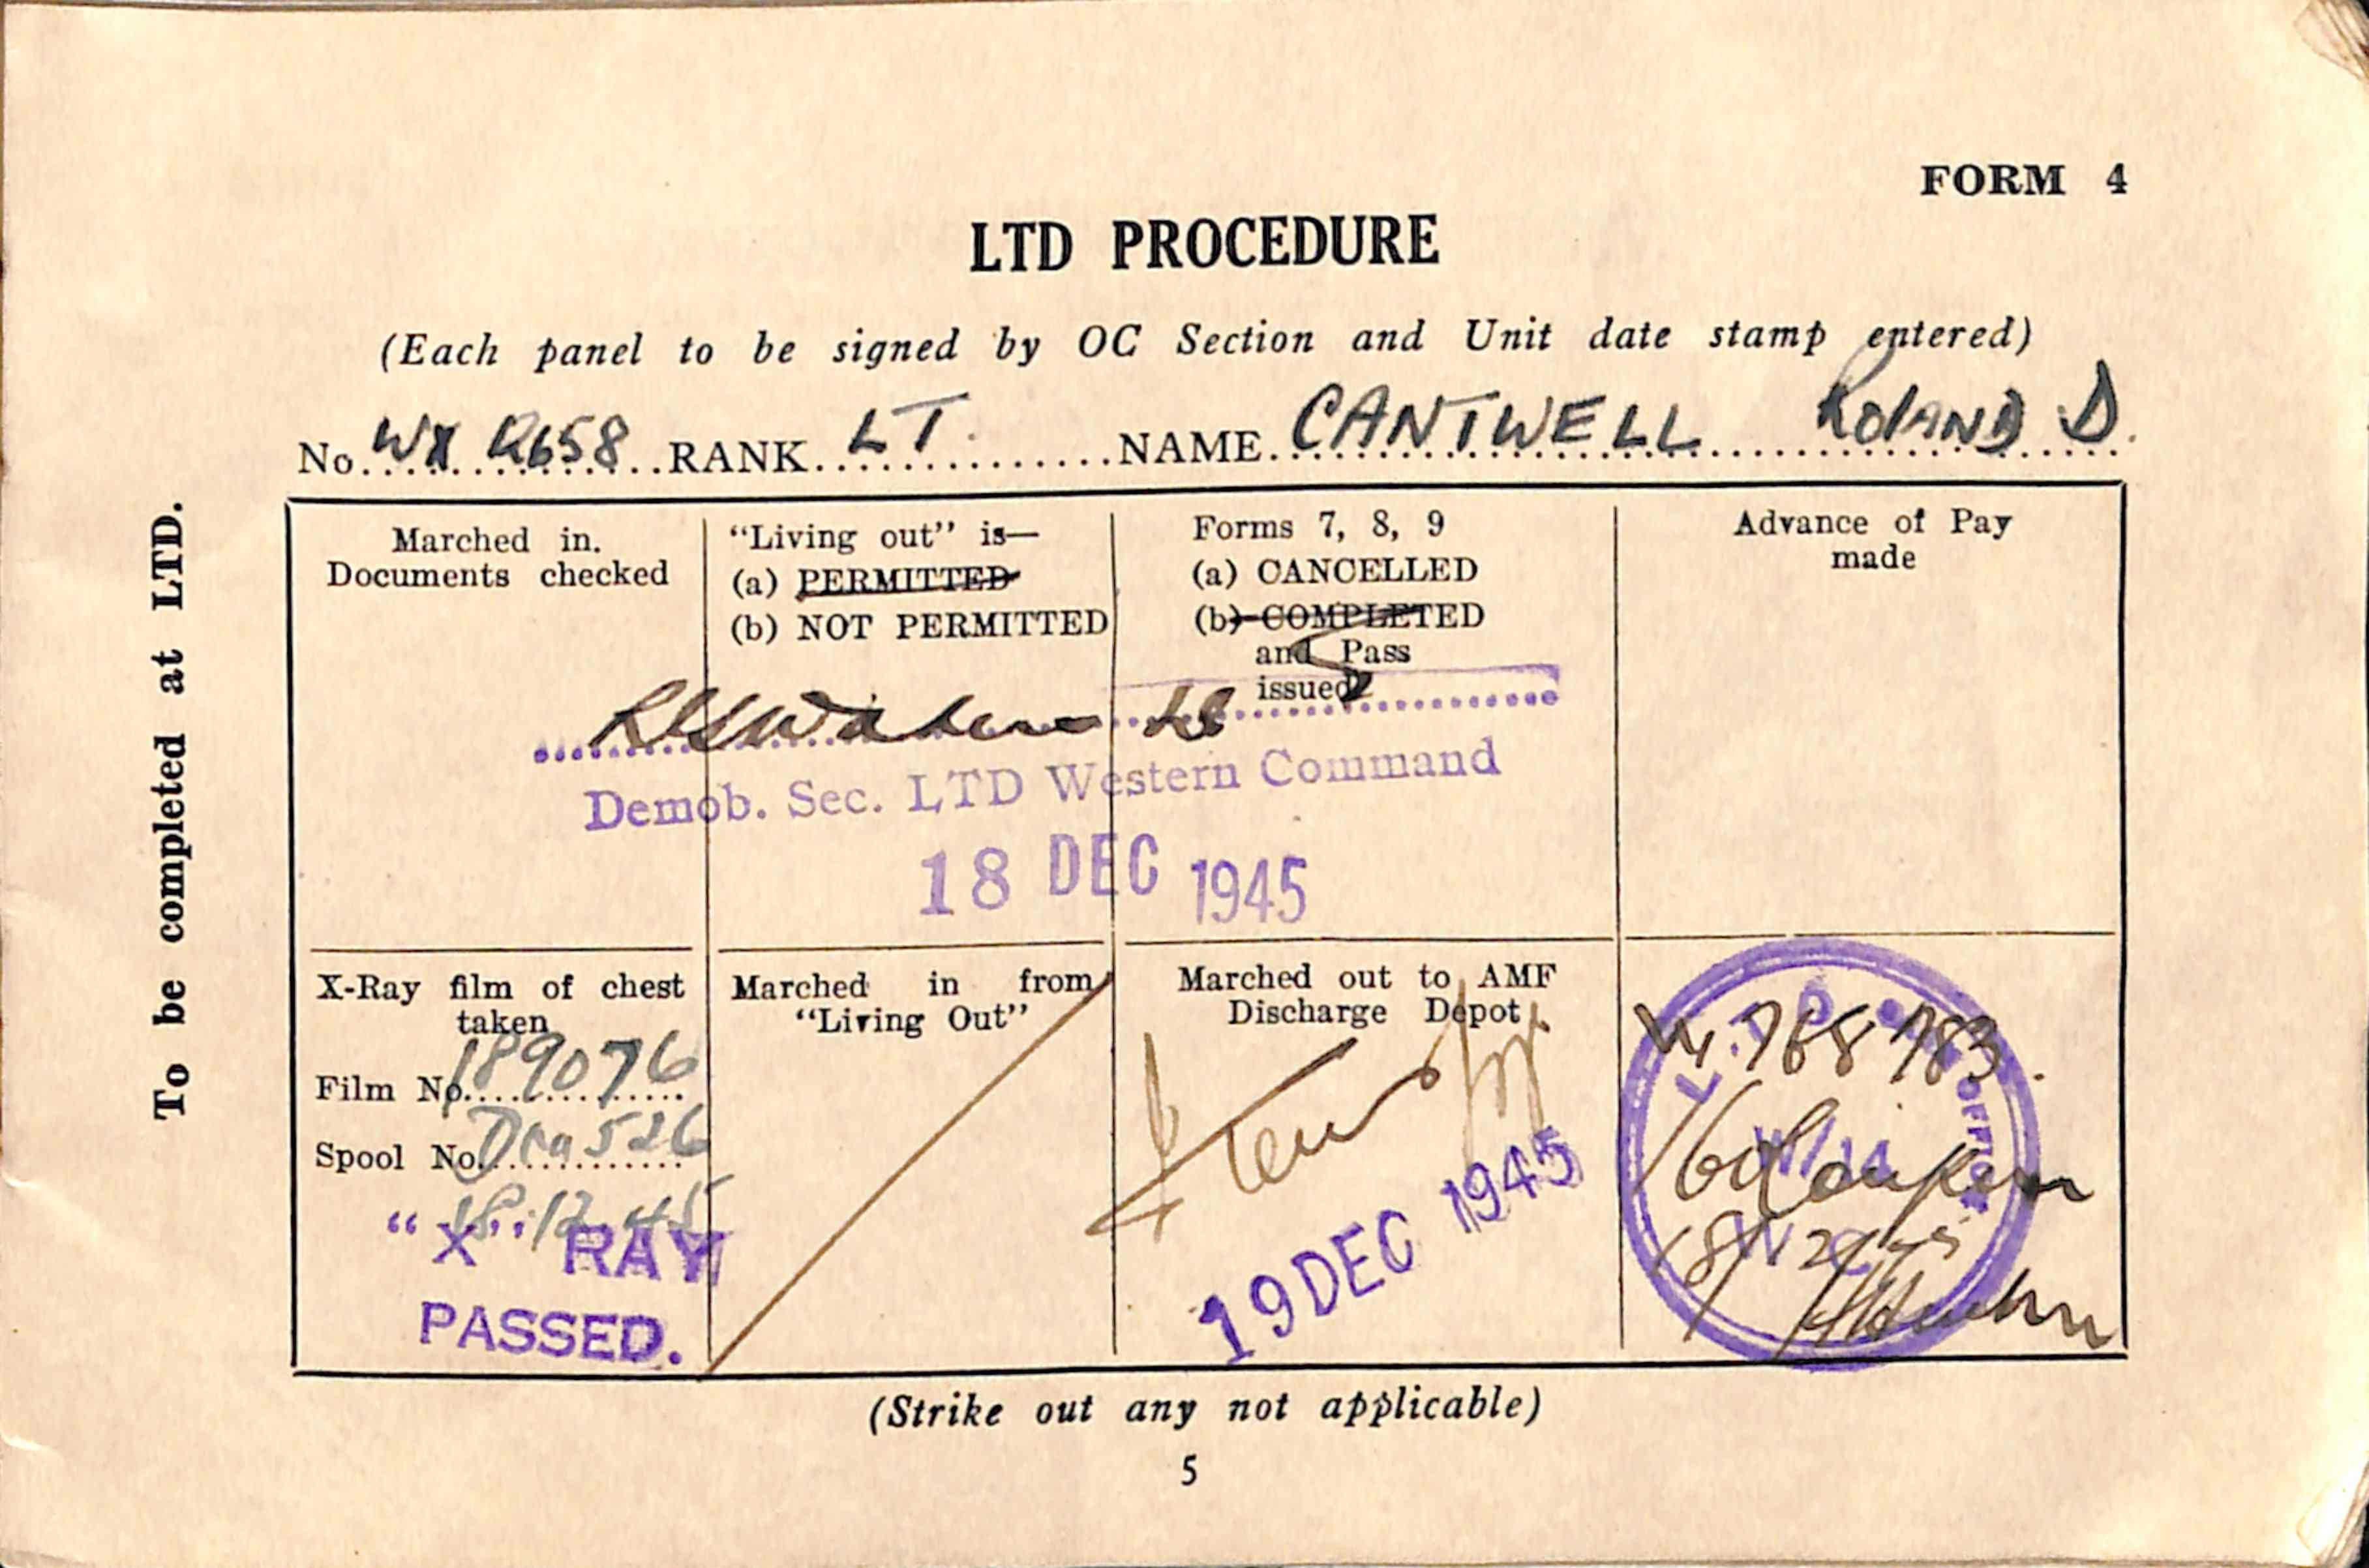 FORM 4
LTD PROCEDURE
(Each panel to be signed by OC Section and Unit date stamp entered)
No. WX RANK LT. NAME CANTWELL ROLAND D.
To be completed at LTD.
Marched in.
Documents checked
"Living out" is—
(a) PERMITTED
(b) NOT PERMITTED
Forms 7, 8, 9
(a) CANCELLED
(b) COMPLETED
and Pass
issued
Advance of Pay
made
Demob. Sec. LTD Western Command
18 DEC 1945
X-Ray film of chest
taken
Film No. 189076
Spool No.
18.12.45
"X" RAY
PASSED.
Marched in from
"Living Out"
Marched out to AMF
Discharge Depot
19 DEC 1945
18/12/45
(Strike out any not applicable)
5